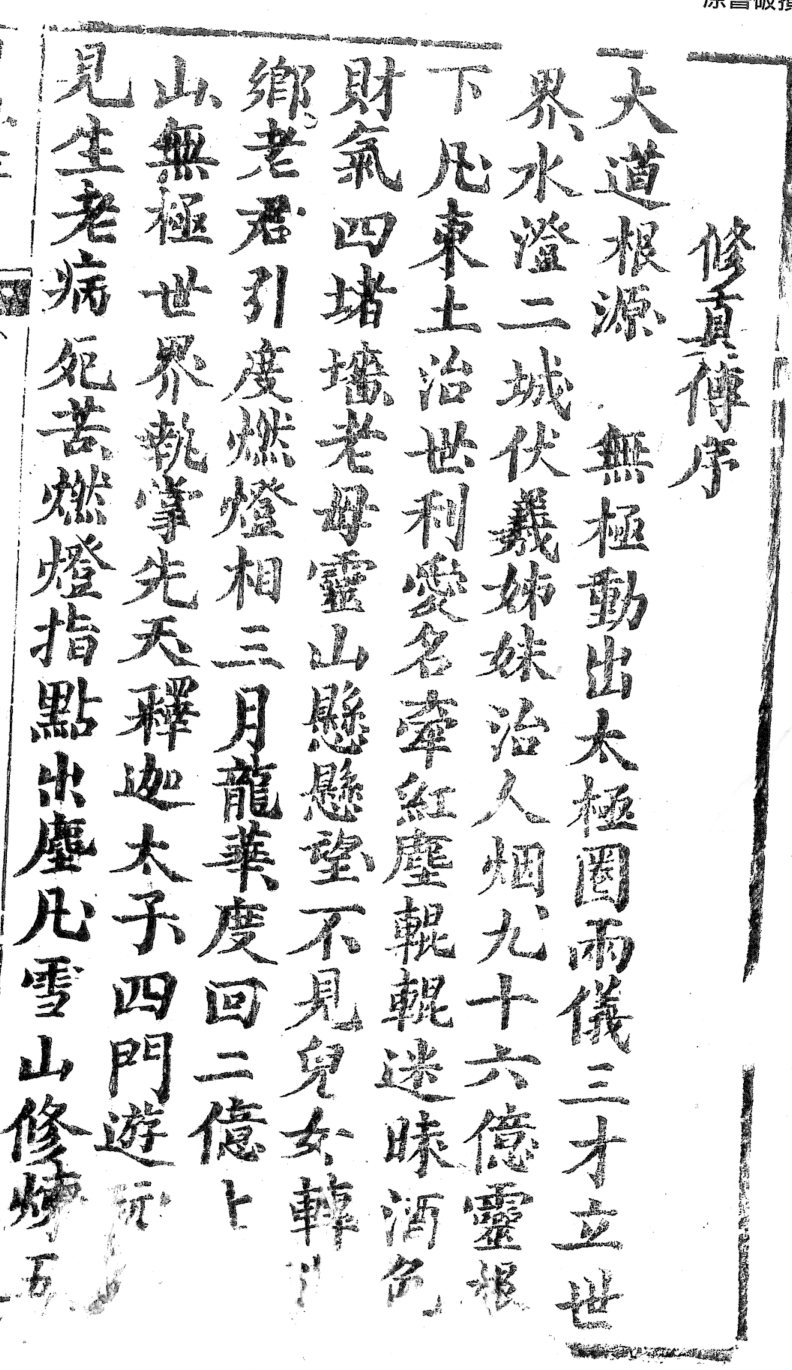 修真傳序
大道根源 無極動出太極圈兩儀三才立世
界水澄二城伏羲姊妹治人烟九十六億靈根
下凡東土治世利愛名牽紅塵輥輥迷昧酒色
財氣四堵墻老母靈山懸懸望不見兒女轉
鄉老君引度燃燈相三月龍華度回二億上
山無極世界執掌先天釋迦太子四門遊玩
見生老病死苦燃燈指點出塵凡雪山修煉五